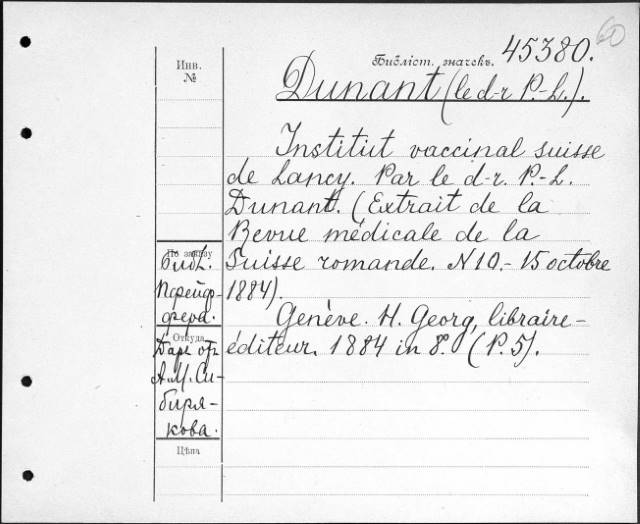 60
Библіот. значекъ. 45380.
Инв.
№
Dunant (le d-r P.-L.).
Institut vaccinal suisse
de Lancy. Par le d-r. P.-L.
Dunant. (Extrait de la
Revue médicale de la
Suisse romande. N10.- 15 octobre
1884).
Genève. H. Georg, libraire-
éditeur. 1884 in 8º. (P.5).
По заказу
Библ.
Пфейф-
фера.
Откуда
Даръ отъ
А.М. Си-
биря-
кова.
Цѣна